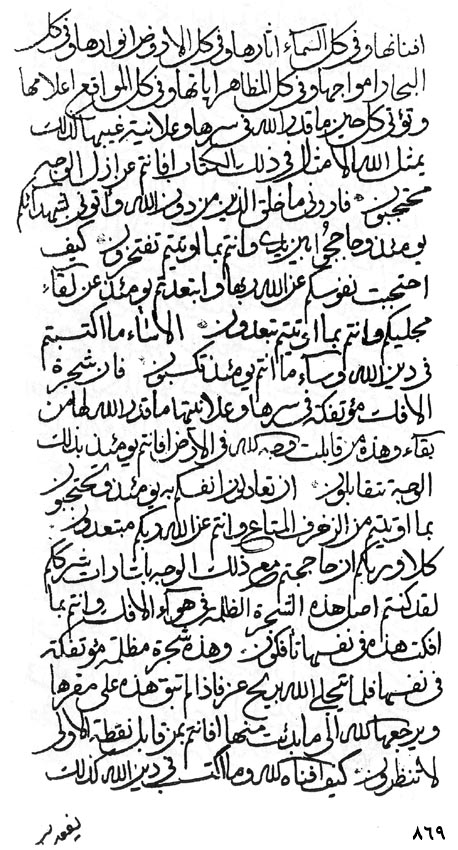 افنانها وفي كل السماء اثارها وفي كل الارض انوارها وفي كل
البحار امواجها وفي كل المظاهر اياتها وفي كل المواقع اعلامها
وتؤتي كل حين ما قدر الله في سرها وعلانية غيبها كذلك
يمثل الله الامثال في ذلك الكتاب افانتم عن ازل الوجه
محتجبون فاروني ما خلق الذين من دون الله واتوني شهدائكم
يومئذ وحاججوا بين يدي وانتم بما اوتيتم تفتخرون كيف
احتجبت نفوسكم عن الله ربها وابتعدتم يومئذ عن لقاء
مجليكم وانتم بما اوتيتم تبعدون الا ساء ما اكتسبتم
في دين الله وساء ما انتم يومئذ تكسبون فان شجرة
الافك مؤتفكة في سرها وعلانيتها ما قدر الله لها من
بقاء وهذه من قابلت وجهة الله في الارض افانتم يومئذ بذلك
الوجهة تتقابلون ان تعادلون انفسكم به يومئذ وتحتجبون
بما اوتيتم من الزخرف المتاع وانتم عن الله ربكم مبتعدون
كلا وربكم ان حاججتم مع ذلك الوجه باشارات شرككم
لقد كنتم اصل هذه الشجرة الظلمة في هواء الافك وانتم بما
افكت هذه في نفسها تافكون وهذه شجرة مظلمة مؤتفكة
في نفسها فلما تجلى الله بريح عز فاذا لم تبق هذه على مقرها
ويرجعها الله الى ما بدئت منها افانتم بمن قابل نقطة الاولى
لا تنظرون كيف افناه الله وما اكتسب في دين الله كذلك
٨٦٩